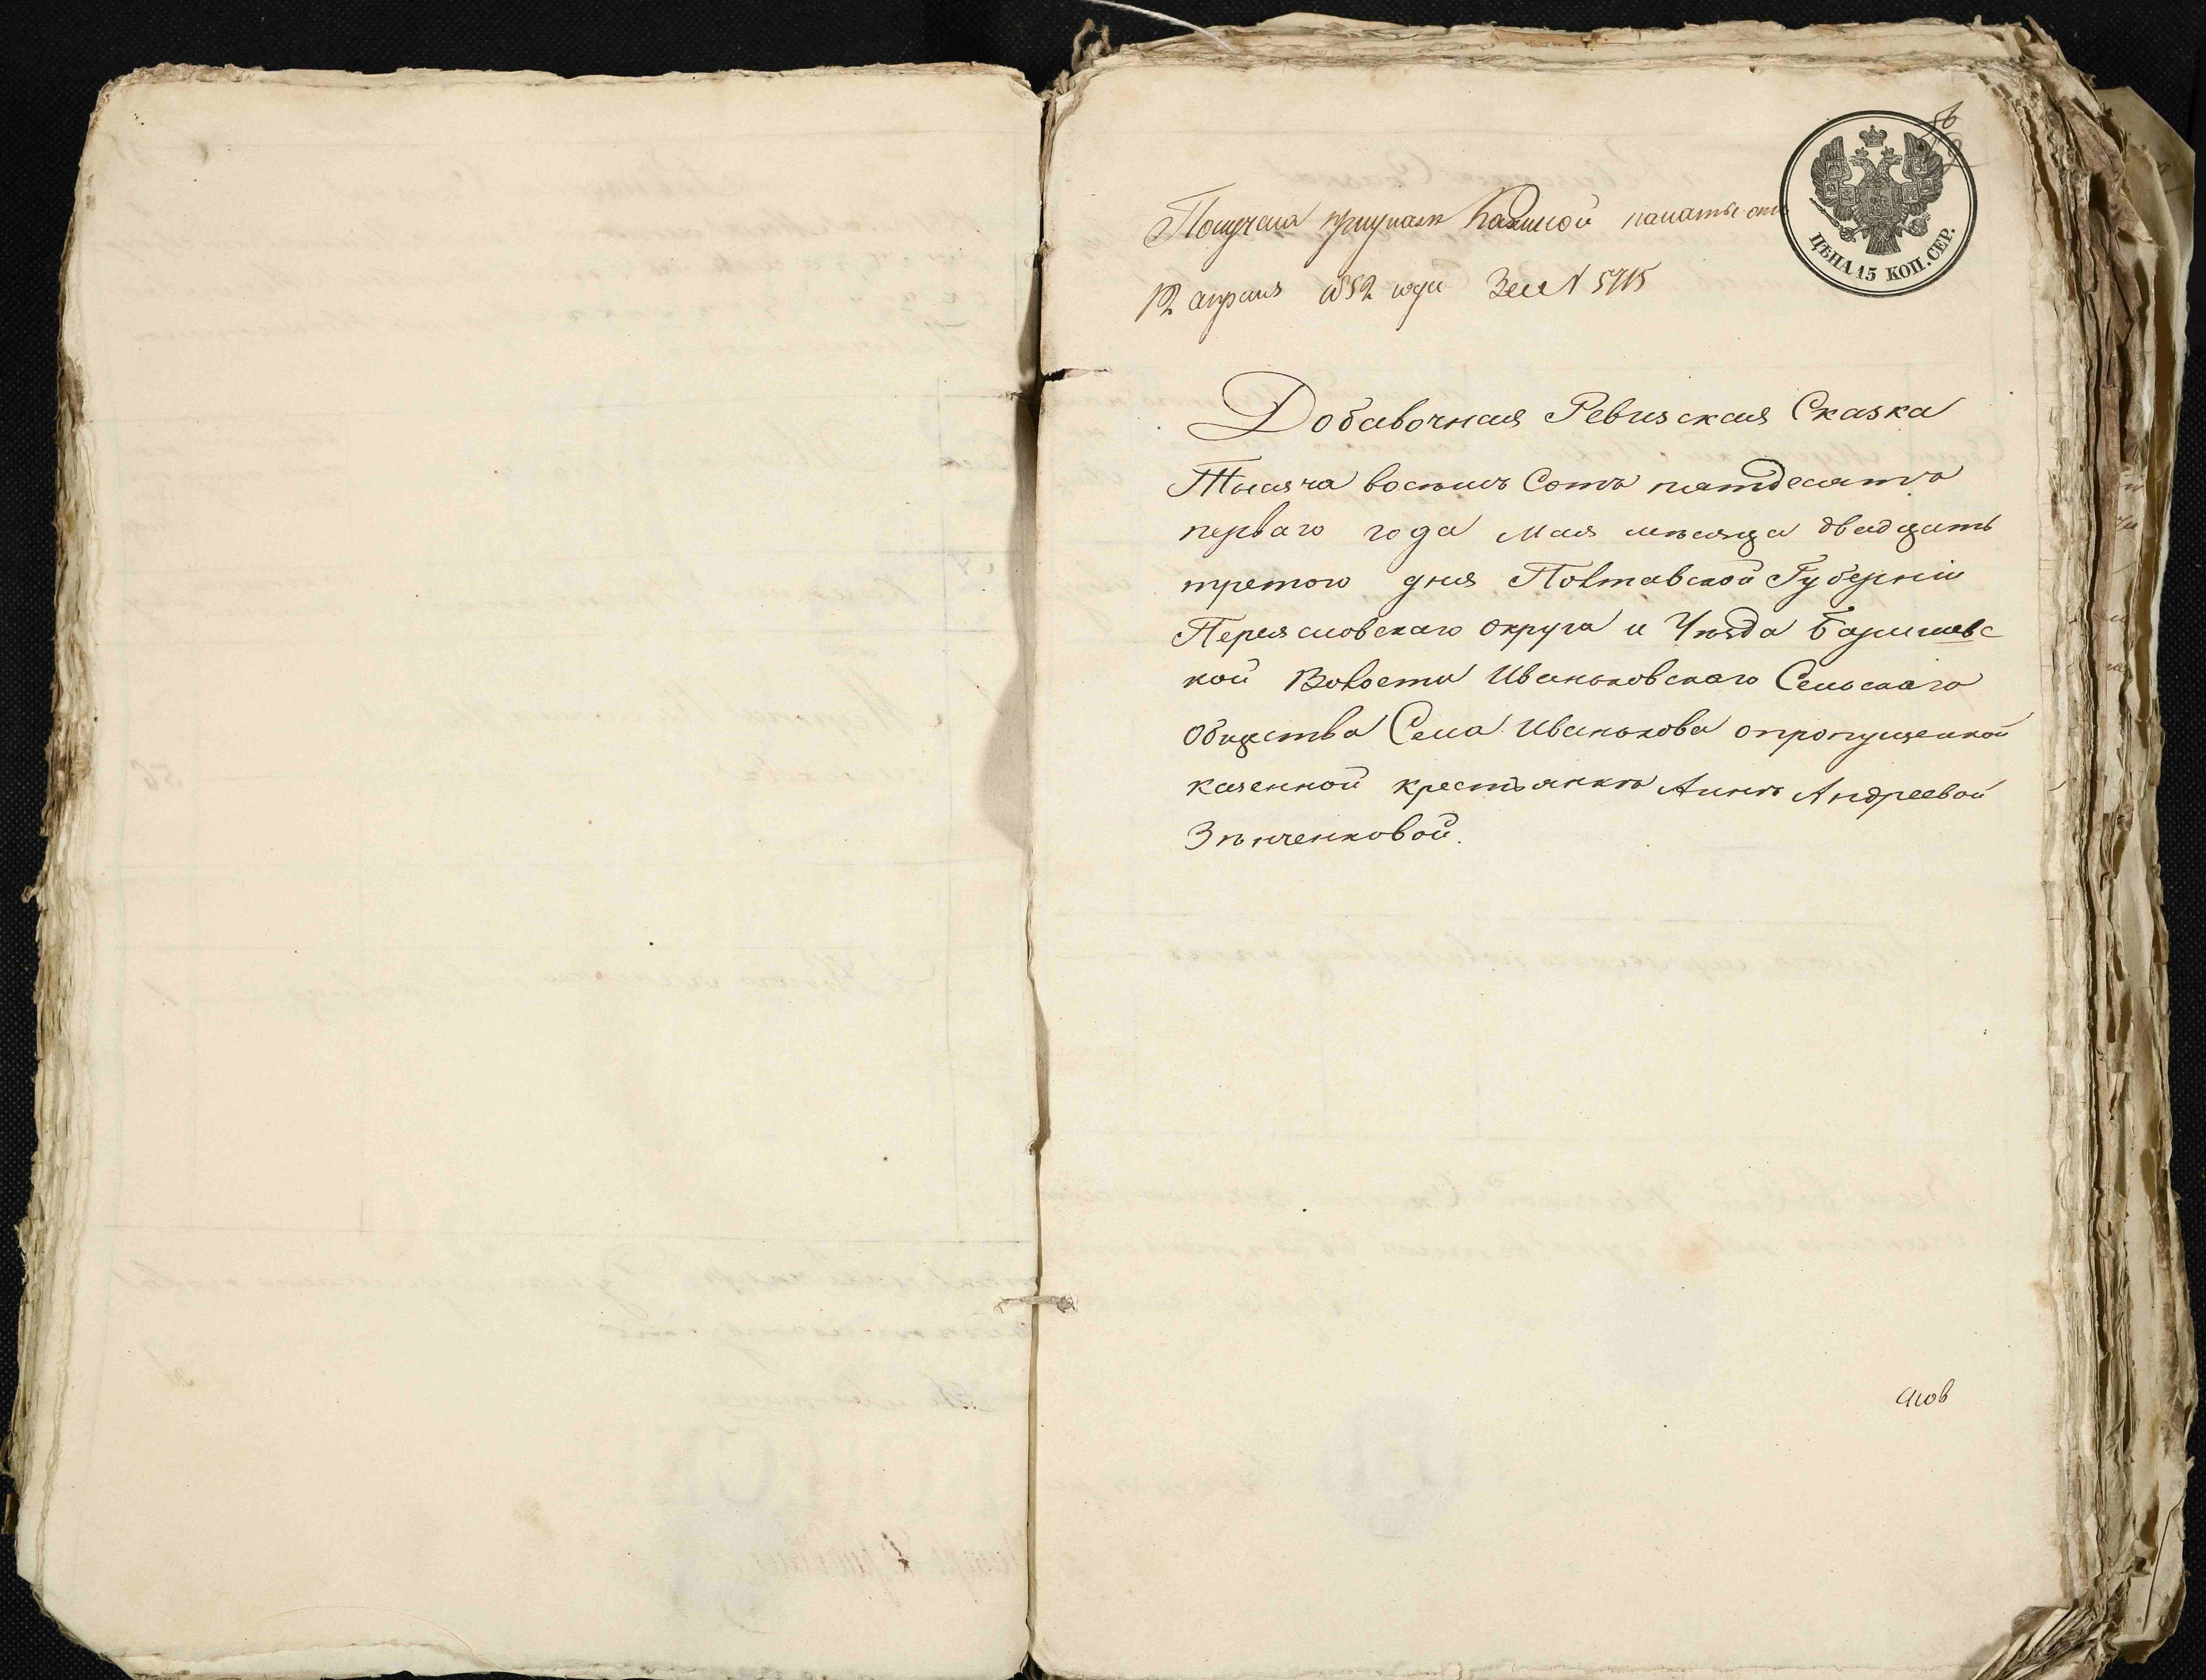 Получена при указѣ Казенной палаты отъ
ЦѢНА 15 КОП. СЕР.
12 апрѣля 1852 года За № 5715
Добавочная Ревизская Сказка
Тысяча восемь Сотъ пятдесятъ
перваго года Мая мѣсяца двадцать
третого дня Полтавской Губерніи
Переясловскаго округа и Уѣзда Баришевс
кой Волости Иваньковскаго Сельскаго
Общества Села Иванькова опропущенной
казенной крестьянкѣ Аннѣ Андреевой
Зѣнченковой.